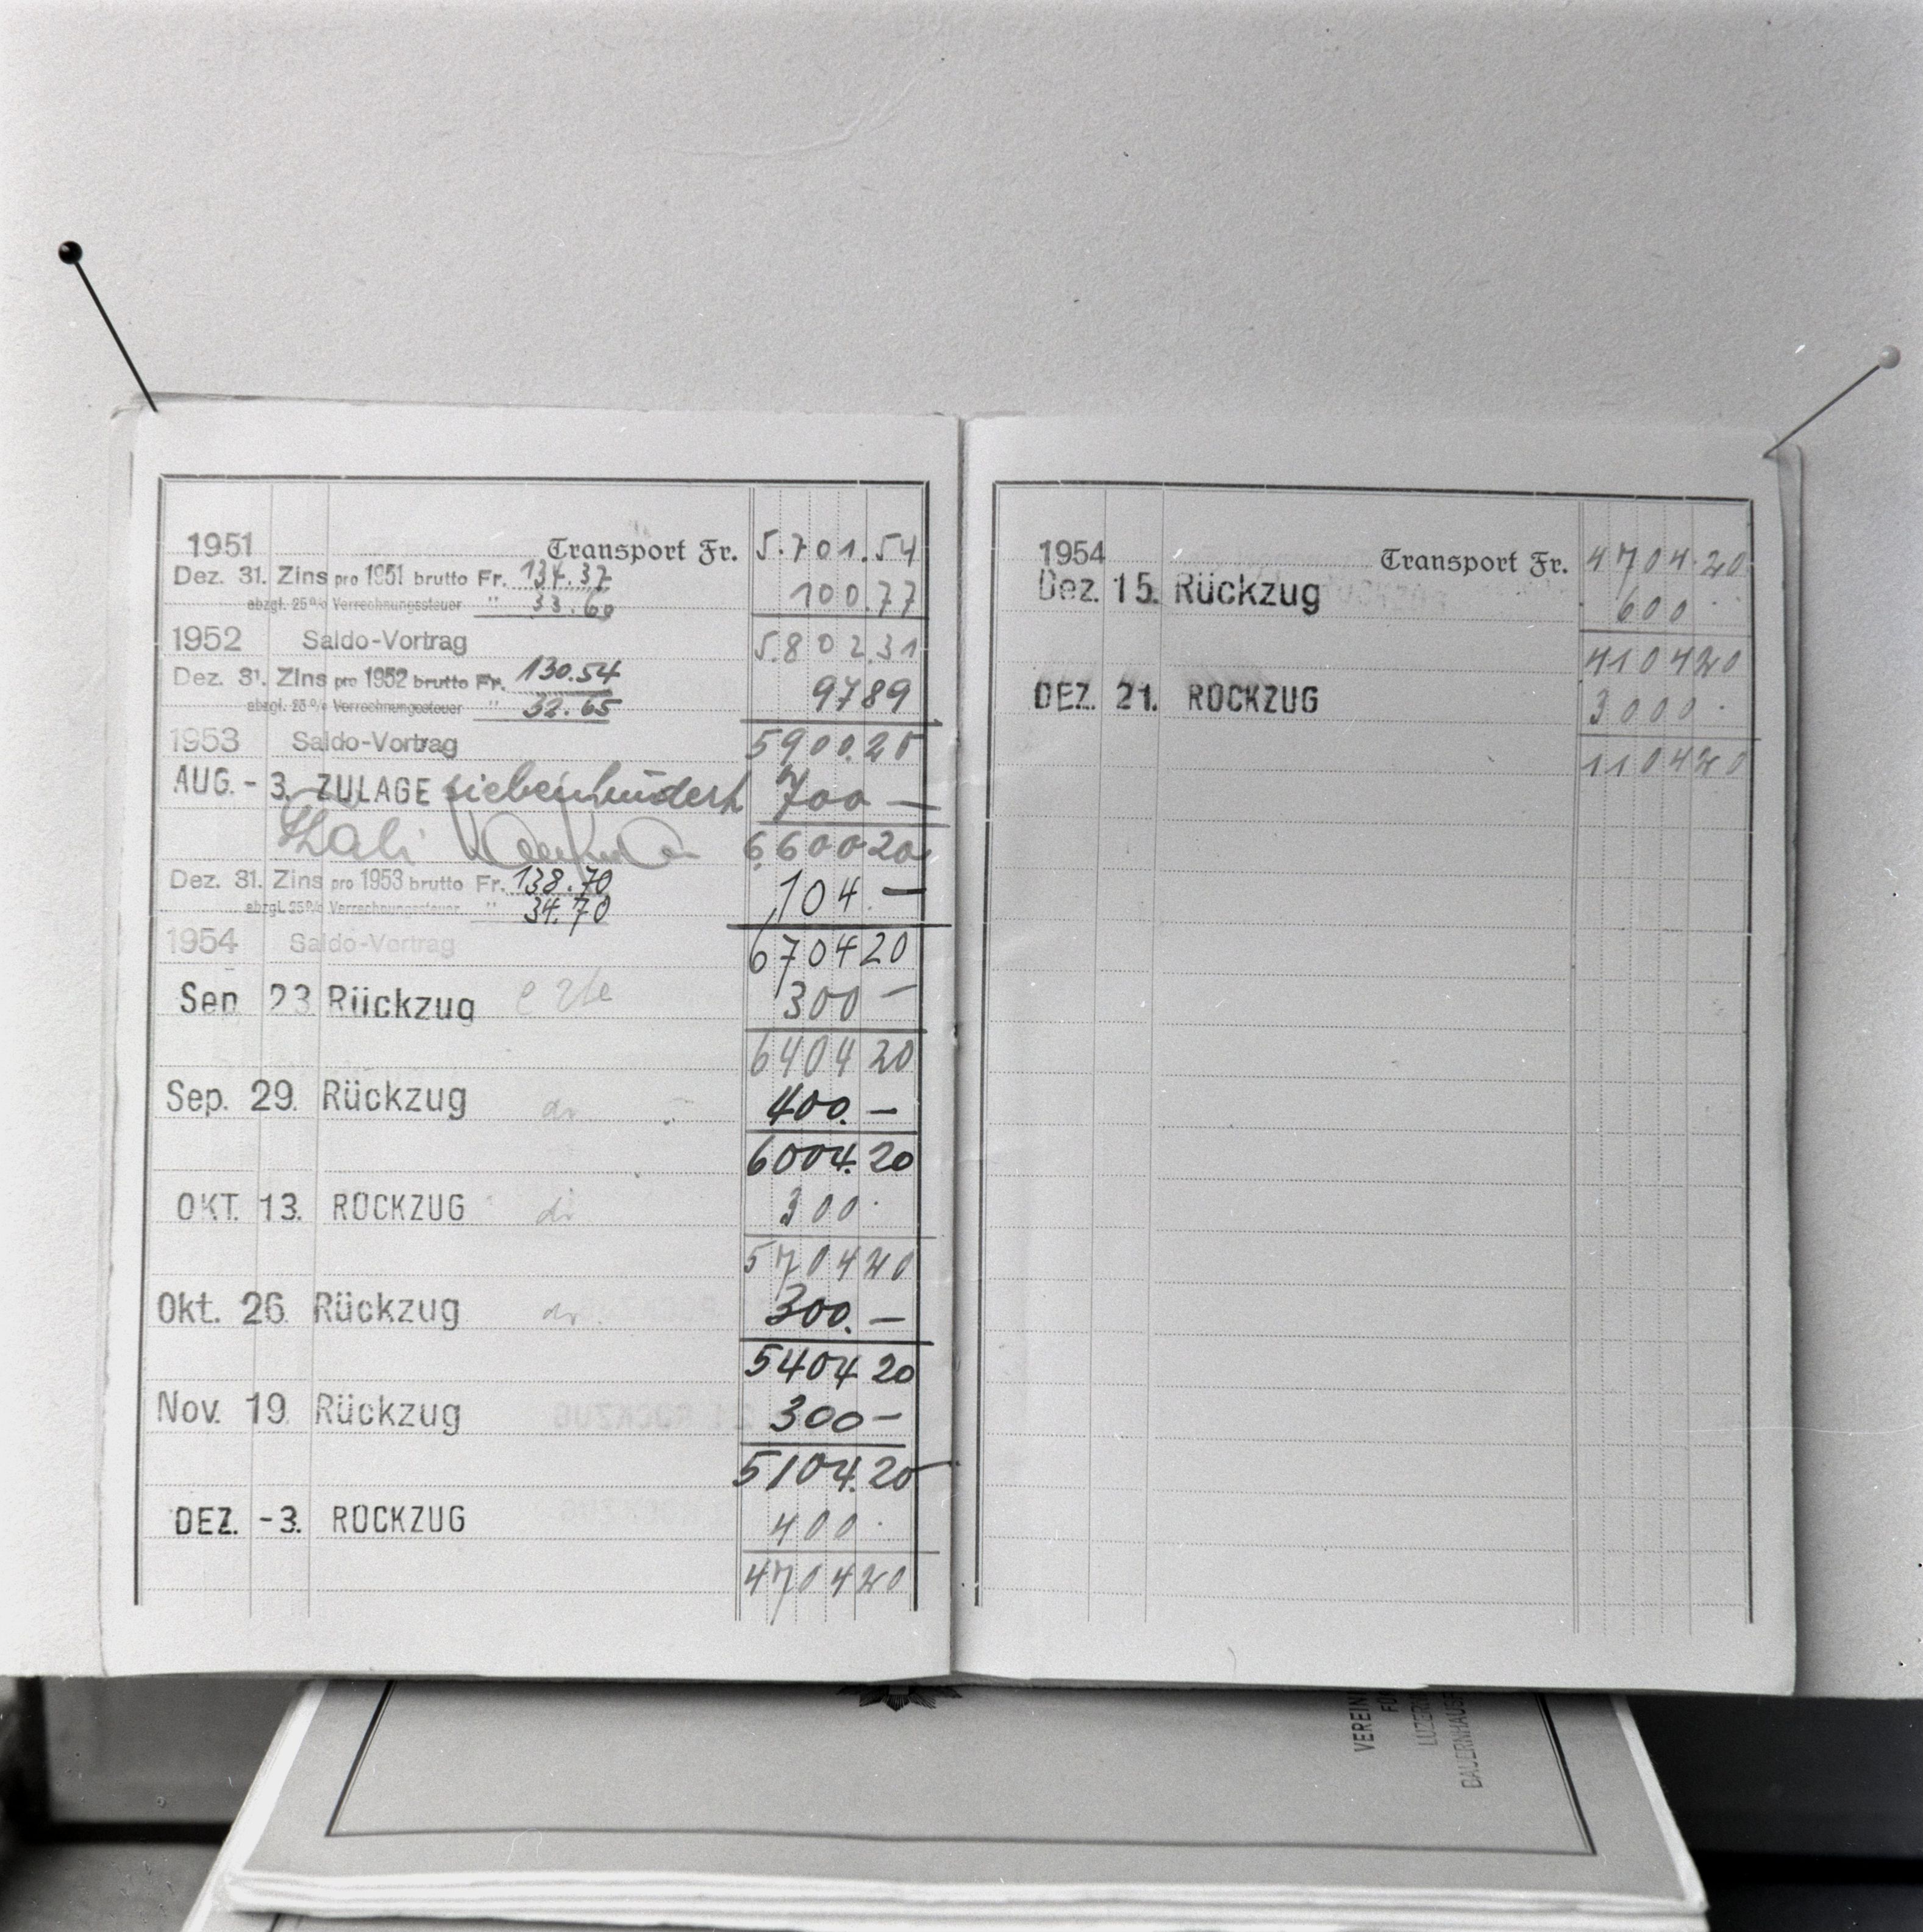 1951 Transport Fr. 5.701.54
Dez. 31. Zins pro 1951 brutto Fr. 134.37
abzgl. 25% Verrechnungssteuer " 33.60 100.77
1952 Saldo-Vortrag 5.802.31
Dez. 31. Zins pro 1952 brutto Fr. 130.54
abzgl. 25% Verrechnungssteuer " 32.65 9789
1953 Saldo-Vortrag 5900.20
AUG. - 3. ZULAGE siebenhundert 700 —
6.600 20
Dez. 31. Zins pro 1953 brutto Fr. 138.70
abzgl. 25% Verrechnungssteuer " 34.70 104.—
1954 Saldo-Vortrag 6704 20
Sep 23 Rückzug 300 —
6404 20
Sep. 29. Rückzug 400.—
6004.20
OKT. 13. RÜCKZUG 300.
5704 20
Okt. 26. Rückzug 300.—
5404 20
Nov. 19. Rückzug 300 —
5104.20
DEZ. -3. RÜCKZUG 400.
4704 20
1954 Transport Fr. 4704.20
Dez. 15. Rückzug 600
4104 20
DEZ. 21. RÜCKZUG 3000.
1104 20
VEREIN
FÜR
LUZERN
BAUERNHAUS